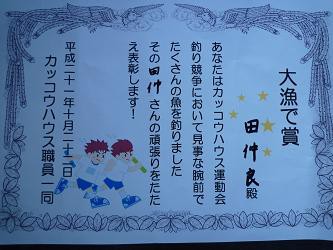 大漁で賞
田仲良殿
あなたはカッコウハウス運動会
釣り競争において見事な腕前で
たくさんの魚を釣りました
その田仲さんの頑張りをたた
え表彰します！
平成二十一年十月二十二日
カッコウハウス職員一同